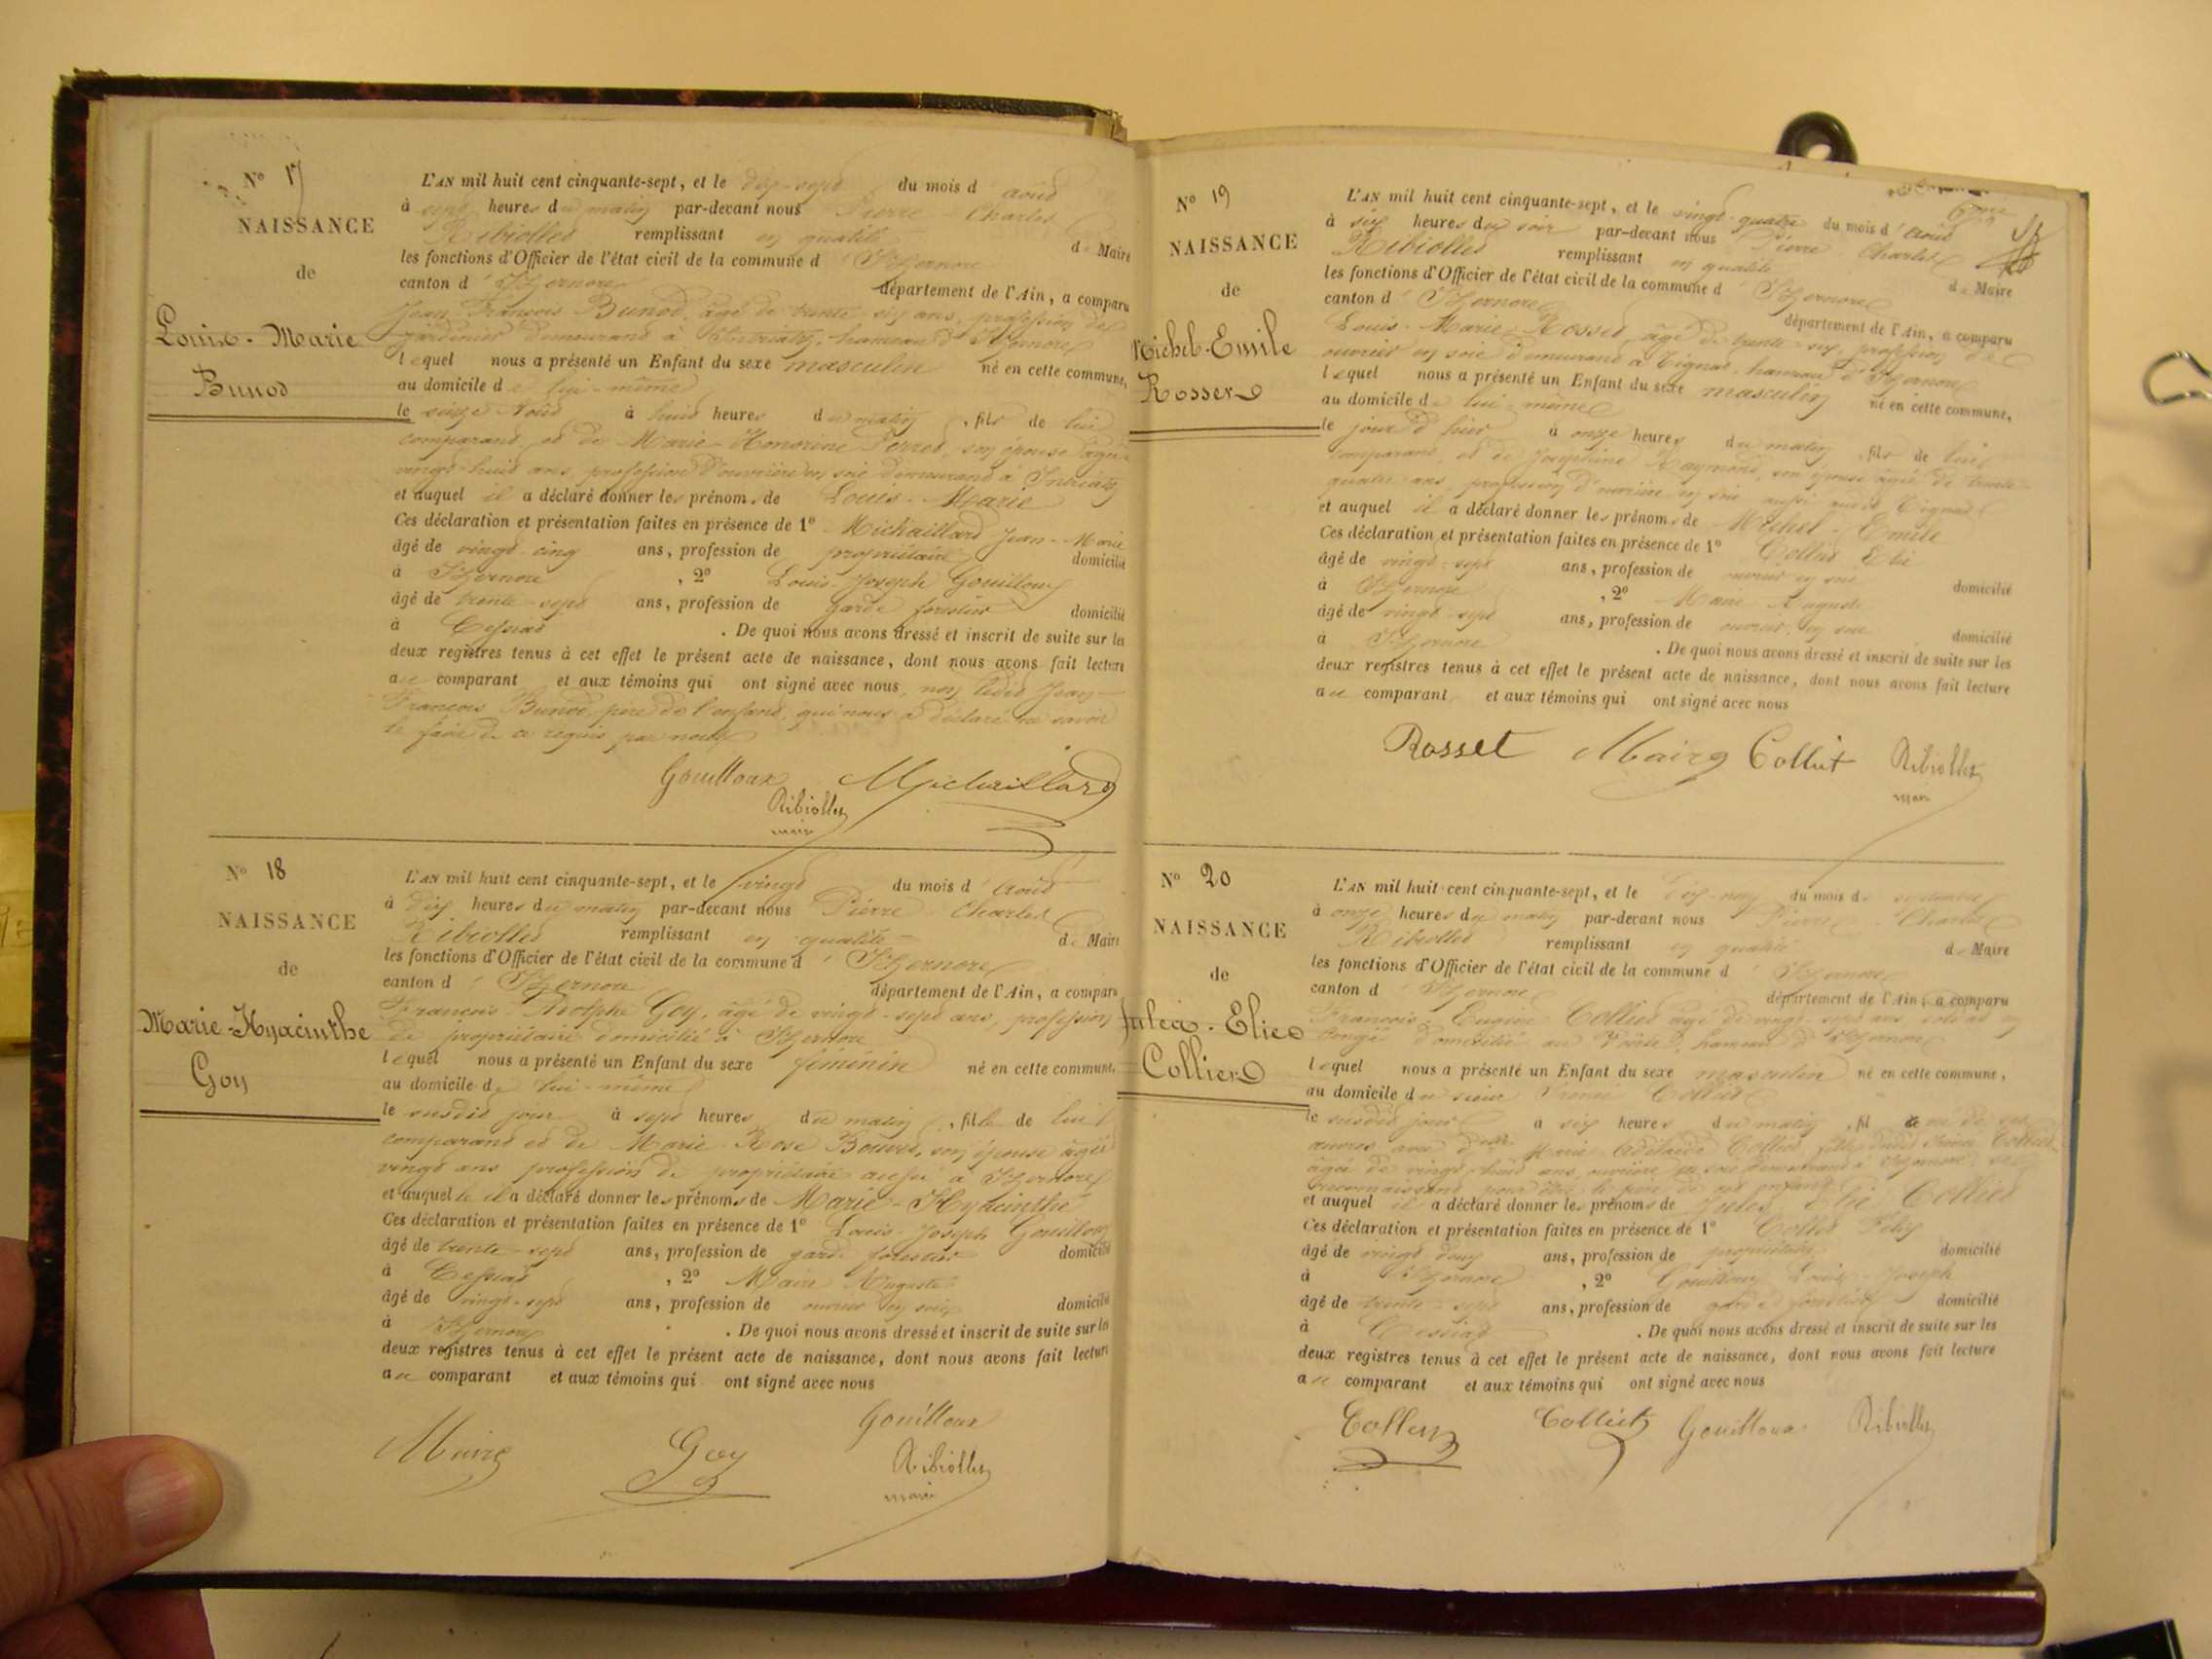 N° 17
NAISSANCE
de
Louis-Marie
Bunod
L'AN mil huit cent cinquante-sept, et le dix-sept du mois d'août
à sept heures du matin par-devant nous Pierre Charles
Ribiollet remplissant en qualité de Maire
les fonctions d'Officier de l'état civil de la commune d'Izernore
canton d'Izernore département de l'Ain, a comparu
Jean François Bunod, âgé de trente six ans, profession de
jardinier demeurant à Intriat, hameau d'Izernore
lequel nous a présenté un Enfant du sexe masculin né en cette commune,
au domicile de lui-même
le seize Août à huit heures du matin, fils de lui
comparant et de Marie-Honorine Perret, son épouse âgée
vingt-huit ans, profession d'ouvrière en soie demeurant à Intriat
et auquel il a déclaré donner les prénoms de Louis-Marie
Ces déclaration et présentation faites en présence de 1° Michaillard Jean-Marie
âgé de vingt cinq ans, profession de propriétaire domicilié
à Izernore, 2° Louis-Joseph Gouilloux
âgé de trente-sept ans, profession de garde forestier domicilié
à Ceissiat. De quoi nous avons dressé et inscrit de suite sur les
deux registres tenus à cet effet le présent acte de naissance, dont nous avons fait lecture
au comparant et aux témoins qui ont signé avec nous, non ledit Jean-
François Bunod, père de l'enfant, qui nous a déclaré ne savoir
le faire de ce requis par nous
Gouilloux Michaillard
Ribiollet
maire
N° 18
NAISSANCE
de
Marie-Hyacinthe
Goy
L'AN mil huit cent cinquante-sept, et le vingt du mois d'Août
à dix heures du matin par-devant nous Pierre Charles
Ribiollet remplissant en qualité de Maire
les fonctions d'Officier de l'état civil de la commune d'Izernore
canton d'Izernore département de l'Ain, a comparu
François-Adolphe Goy, âgé de vingt-sept ans, profession
de propriétaire domicilié à Izernore
lequel nous a présenté un Enfant du sexe féminin né en cette commune,
au domicile de lui-même
le susdit jour à sept heures du matin, fille de lui
comparant et de Marie Rose Bouvet, son épouse âgée
vingt ans profession de propriétaire aussi à Izernore
et auquel le il a déclaré donner les prénoms de Marie-Hyacinthe
Ces déclaration et présentation faites en présence de 1° Louis-Joseph Gouilloux
âgé de trente-sept ans, profession de garde forestier domicilié
à Ceissiat, 2° Maire Auguste
âgé de vingt-sept ans, profession de ouvrier en soie domicilié
à Izernore. De quoi nous avons dressé et inscrit de suite sur les
deux registres tenus à cet effet le présent acte de naissance, dont nous avons fait lecture
au comparant et aux témoins qui ont signé avec nous
Maire Goy Gouilloux
Ribiollet
maire
N° 19
NAISSANCE
de
Michel-Emile
Rosset
L'AN mil huit cent cinquante-sept, et le vingt-quatre du mois d'Août
à six heures du soir par-devant nous Pierre Charles
Ribiollet remplissant en qualité de Maire
les fonctions d'Officier de l'état civil de la commune d'Izernore
canton d'Izernore département de l'Ain, a comparu
Louis-Marie Rosset, âgé de trente-six, profession de
ouvrier en soie demeurant à Tignat, hameau d'Izernore
lequel nous a présenté un Enfant du sexe masculin né en cette commune,
au domicile de lui-même
le jour d'hier à onze heures du matin, fils de lui
comparant, et de Joséphine Raymond, son épouse âgée de trente
quatre ans, profession d'ouvrière en soie aussi audit Tignat
et auquel il a déclaré donner les prénoms de Michel-Emile
Ces déclaration et présentation faites en présence de 1° Collet Elie
âgé de vingt-sept ans, profession de ouvrier en soie domicilié
à Izernore, 2° Maire Auguste
âgé de vingt-sept ans, profession de ouvrier en soie domicilié
à Izernore. De quoi nous avons dressé et inscrit de suite sur les
deux registres tenus à cet effet le présent acte de naissance, dont nous avons fait lecture
au comparant et aux témoins qui ont signé avec nous
Rosset Maire Colliet Ribiollet
maire
N° 20
NAISSANCE
de
Jules-Elie
Colliet
L'AN mil huit cent cinquante-sept, et le dix-neuf du mois de septembre
à onze heures du matin par-devant nous Pierre Charles
Ribiollet remplissant en qualité de Maire
les fonctions d'Officier de l'état civil de la commune d'Izernore
canton d'Izernore département de l'Ain, a comparu
François-Eugène Colliet âgé de vingt-sept ans soldat en
congé domicilié au Voerle, hameau d'Izernore
lequel nous a présenté un Enfant du sexe masculin né en cette commune,
au domicile du sieur Colliet
le susdit jour à six heures du matin, fil né de ses
œuvres avec dlle Marie Adélaïde Colliet fille dudit Colliet
âgée de vingt-huit ans, ouvrière en soie demeurant à Izernore, se
reconnaissant pour être le père de cet enfant
et auquel il a déclaré donner les prénoms de Jules Elie Colliet
Ces déclaration et présentation faites en présence de 1° Colliet Félix
âgé de vingt deux ans, profession de propriétaire domicilié
à Izernore, 2° Gouilloux Louis-Joseph
âgé de trente-sept ans, profession de garde forestier domicilié
à Ceissiat. De quoi nous avons dressé et inscrit de suite sur les
deux registres tenus à cet effet le présent acte de naissance, dont nous avons fait lecture
au comparant et aux témoins qui ont signé avec nous
Collet Colliet Gouilloux Ribiollet